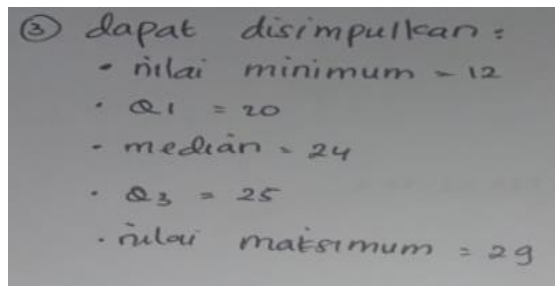 ③ dapat disimpulkan :
• nilai minimum = 12
• Q1 = 20
- median = 24
• Q3 = 25
• nilai maksimum = 29